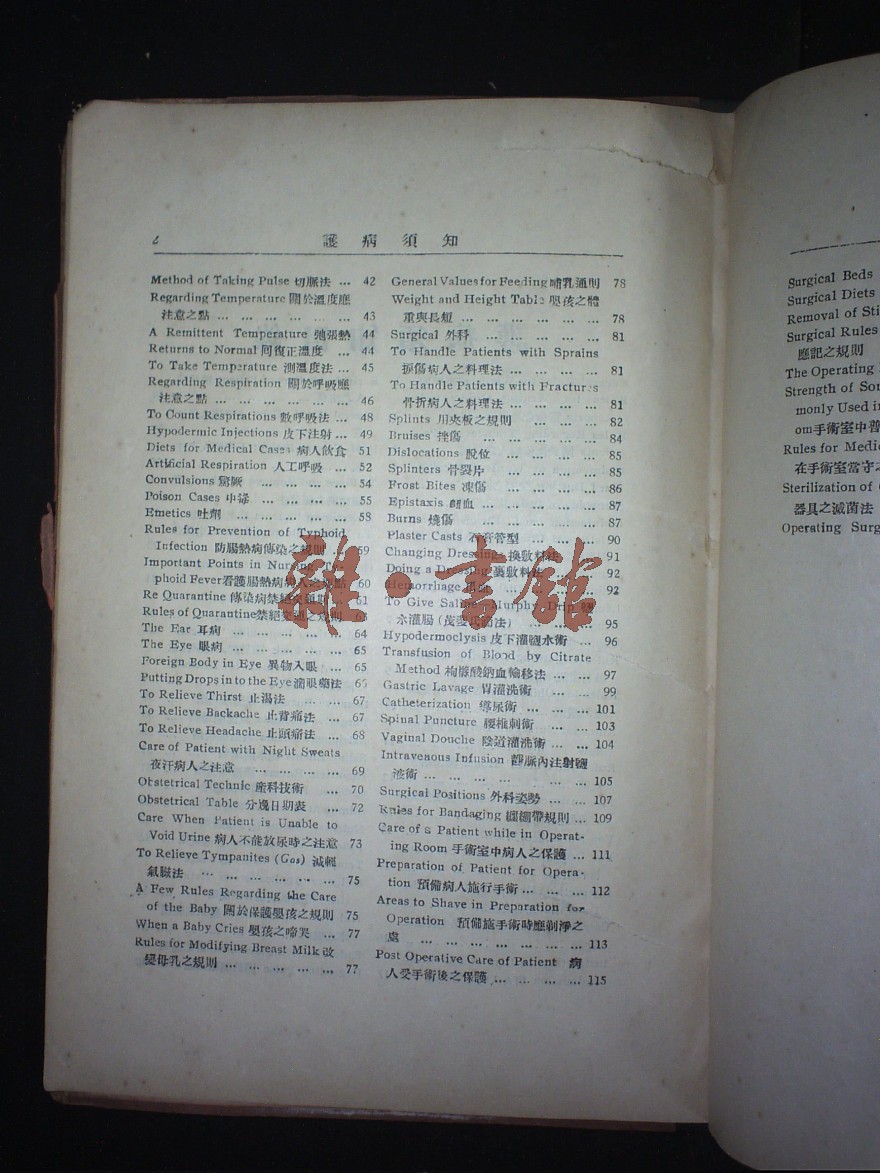 護病須知
Method of Taking Pulse 切脈法 ... 42
Regarding Temperature 關於溫度應
注意之點 ... ... ... ... ... 43
A Remittent Temperature 弛張熱 44
Returns to Normal 囘復正溫度 ... 44
To Take Temperature 測溫度法 ... 45
Regarding Respiration 關於呼吸應
注意之點 ... ... ... ... ... ... 46
To Count Respirations 數呼吸法 ... 48
Hypodermic Injections 皮下注射 ... 49
Diets for Medical Cases 病人飲食 51
Artificial Respiration 人工呼吸 ... 52
Convulsions 驚厥 ... ... ... ... 54
Poison Cases 中毒 ... ... ... ... 55
Emetics 吐劑 ... ... ... ... ... 58
Rules for Prevention of Typhoid
Infection 防腸熱病傳染之規則 ... 59
Important Points in Nursing Ty-
phoid Fever 看護腸熱病病人之要點 60
Re Quarantine 傳染病禁絕交通期 ... 61
Rules of Quarantine 禁絕交通之規則 63
The Ear 耳病 ... ... ... ... ... 64
The Eye 眼病 ... ... ... ... ... 65
Foreign Body in Eye 異物入眼 ... 65
Putting Drops in to the Eye 滴眼藥法 65
To Relieve Thirst 止渴法 ... ... 67
To Relieve Backache 止背痛法 ... 67
To Relieve Headache 止頭痛法 ... 68
Care of Patient with Night Sweats
夜汗病人之注意 ... ... ... ... 69
Obstetrical Technic 產科技術 ... 70
Obstetrical Table 分娩日期表 ... 72
Care When Patient is Unable to
Void Urine 病人不能放尿時之注意 73
To Relieve Tympanites (Gas) 減輕
氣臌法 ... ... ... ... ... ... 75
A Few Rules Regarding the Care
of the Baby 關於保護嬰孩之規則 75
When a Baby Cries 嬰孩之啼哭 ... 77
Rules for Modifying Breast Milk 改
變母乳之規則 ... ... ... ... ... 77
General Values for Feeding 哺乳通則 78
Weight and Height Table 嬰孩之體
重與長短 ... ... ... ... ... ... 78
Surgical 外科 ... ... ... ... ... 81
To Handle Patients with Sprains
捩傷病人之料理法 ... ... ... ... 81
To Handle Patients with Fractures
骨折病人之料理法 ... ... ... ... 81
Splints 用夾板之規則 ... ... 82
Bruises 挫傷 ... ... ... ... ... 84
Dislocations 脫位 ... ... ... ... 85
Splinters 骨裂片 ... ... ... ... 85
Frost Bites 凍傷 ... ... ... ... 86
Epistaxis 衄血 ... ... ... ... ... 87
Burns 燒傷 ... ... ... ... ... 87
Plaster Casts 石膏管型 ... ... ... 90
Changing Dressings 換敷料法 ... 91
Doing a Dressing 裹敷料法 ... ... 92
Hemorrhage ... ... ... 92
To Give Saline, Murphy Drip 鹽
水灌腸 ... ... ... 95
Hypodermoclysis 皮下灌鹽水術 ... 96
Transfusion of Blood by Citrate
Method 枸櫞酸鈉血輸移法 ... ... 97
Gastric Lavage 胃灌洗術 ... ... 99
Catheterization 導尿術 ... ... ... 101
Spinal Puncture 腰椎刺術 ... ... 103
Vaginal Douche 陰道灌洗術 ... ... 104
Intravenous Infusion 靜脈內注射鹽
液術 ... ... ... ... ... ... 105
Surgical Positions 外科姿勢 ... ... 107
Rules for Bandaging 繃帶規則 ... 109
Care of a Patient while in Operat-
ing Room 手術室中病人之保護 ... 111
Preparation of Patient for Opera-
tion 預備病人施行手術 ... ... ... 112
Areas to Shave in Preparation for
Operation 預備施手術時應剃淨之
處 ... ... ... ... ... ... 113
Post Operative Care of Patient 病
人受手術後之保護 ... ... ... ... 115
Surgical Beds
Surgical Diets
Removal of Sti
Surgical Rules
應記之規則
The Operating
Strength of So
monly Used in
om手術室中普
Rules for Medi
在手術室當守之
Sterilization of
器具之滅菌法
Operating Surg
雜·書館